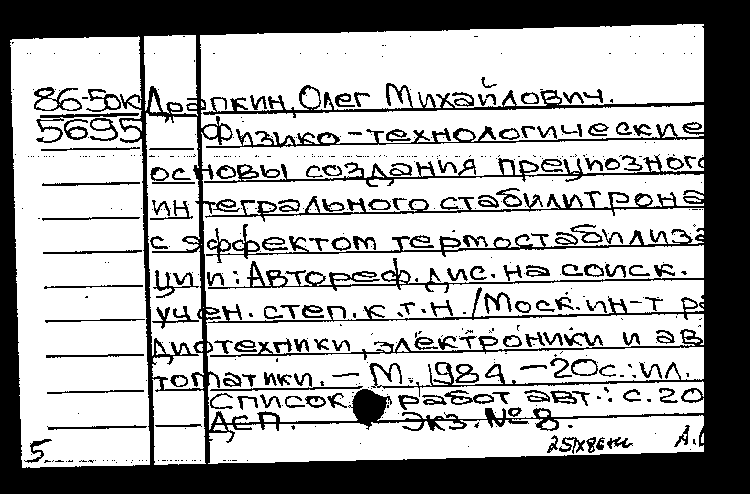 86-50к Драпкин, Олег Михайлович.
5695 Физико-технологические
основы создания прецизозного
интегрального стабилитрона
с эффектом термостабилиза
ции: Автореф. дис. на соиск.
учен. степ. к.т.н. / Моск. ин-т ра
диотехники, электроники и ав
томатики. — М., 1984. — 20с.: ил.
Список работ авт.: с. 20
ДСП. Экз. № 8.
5